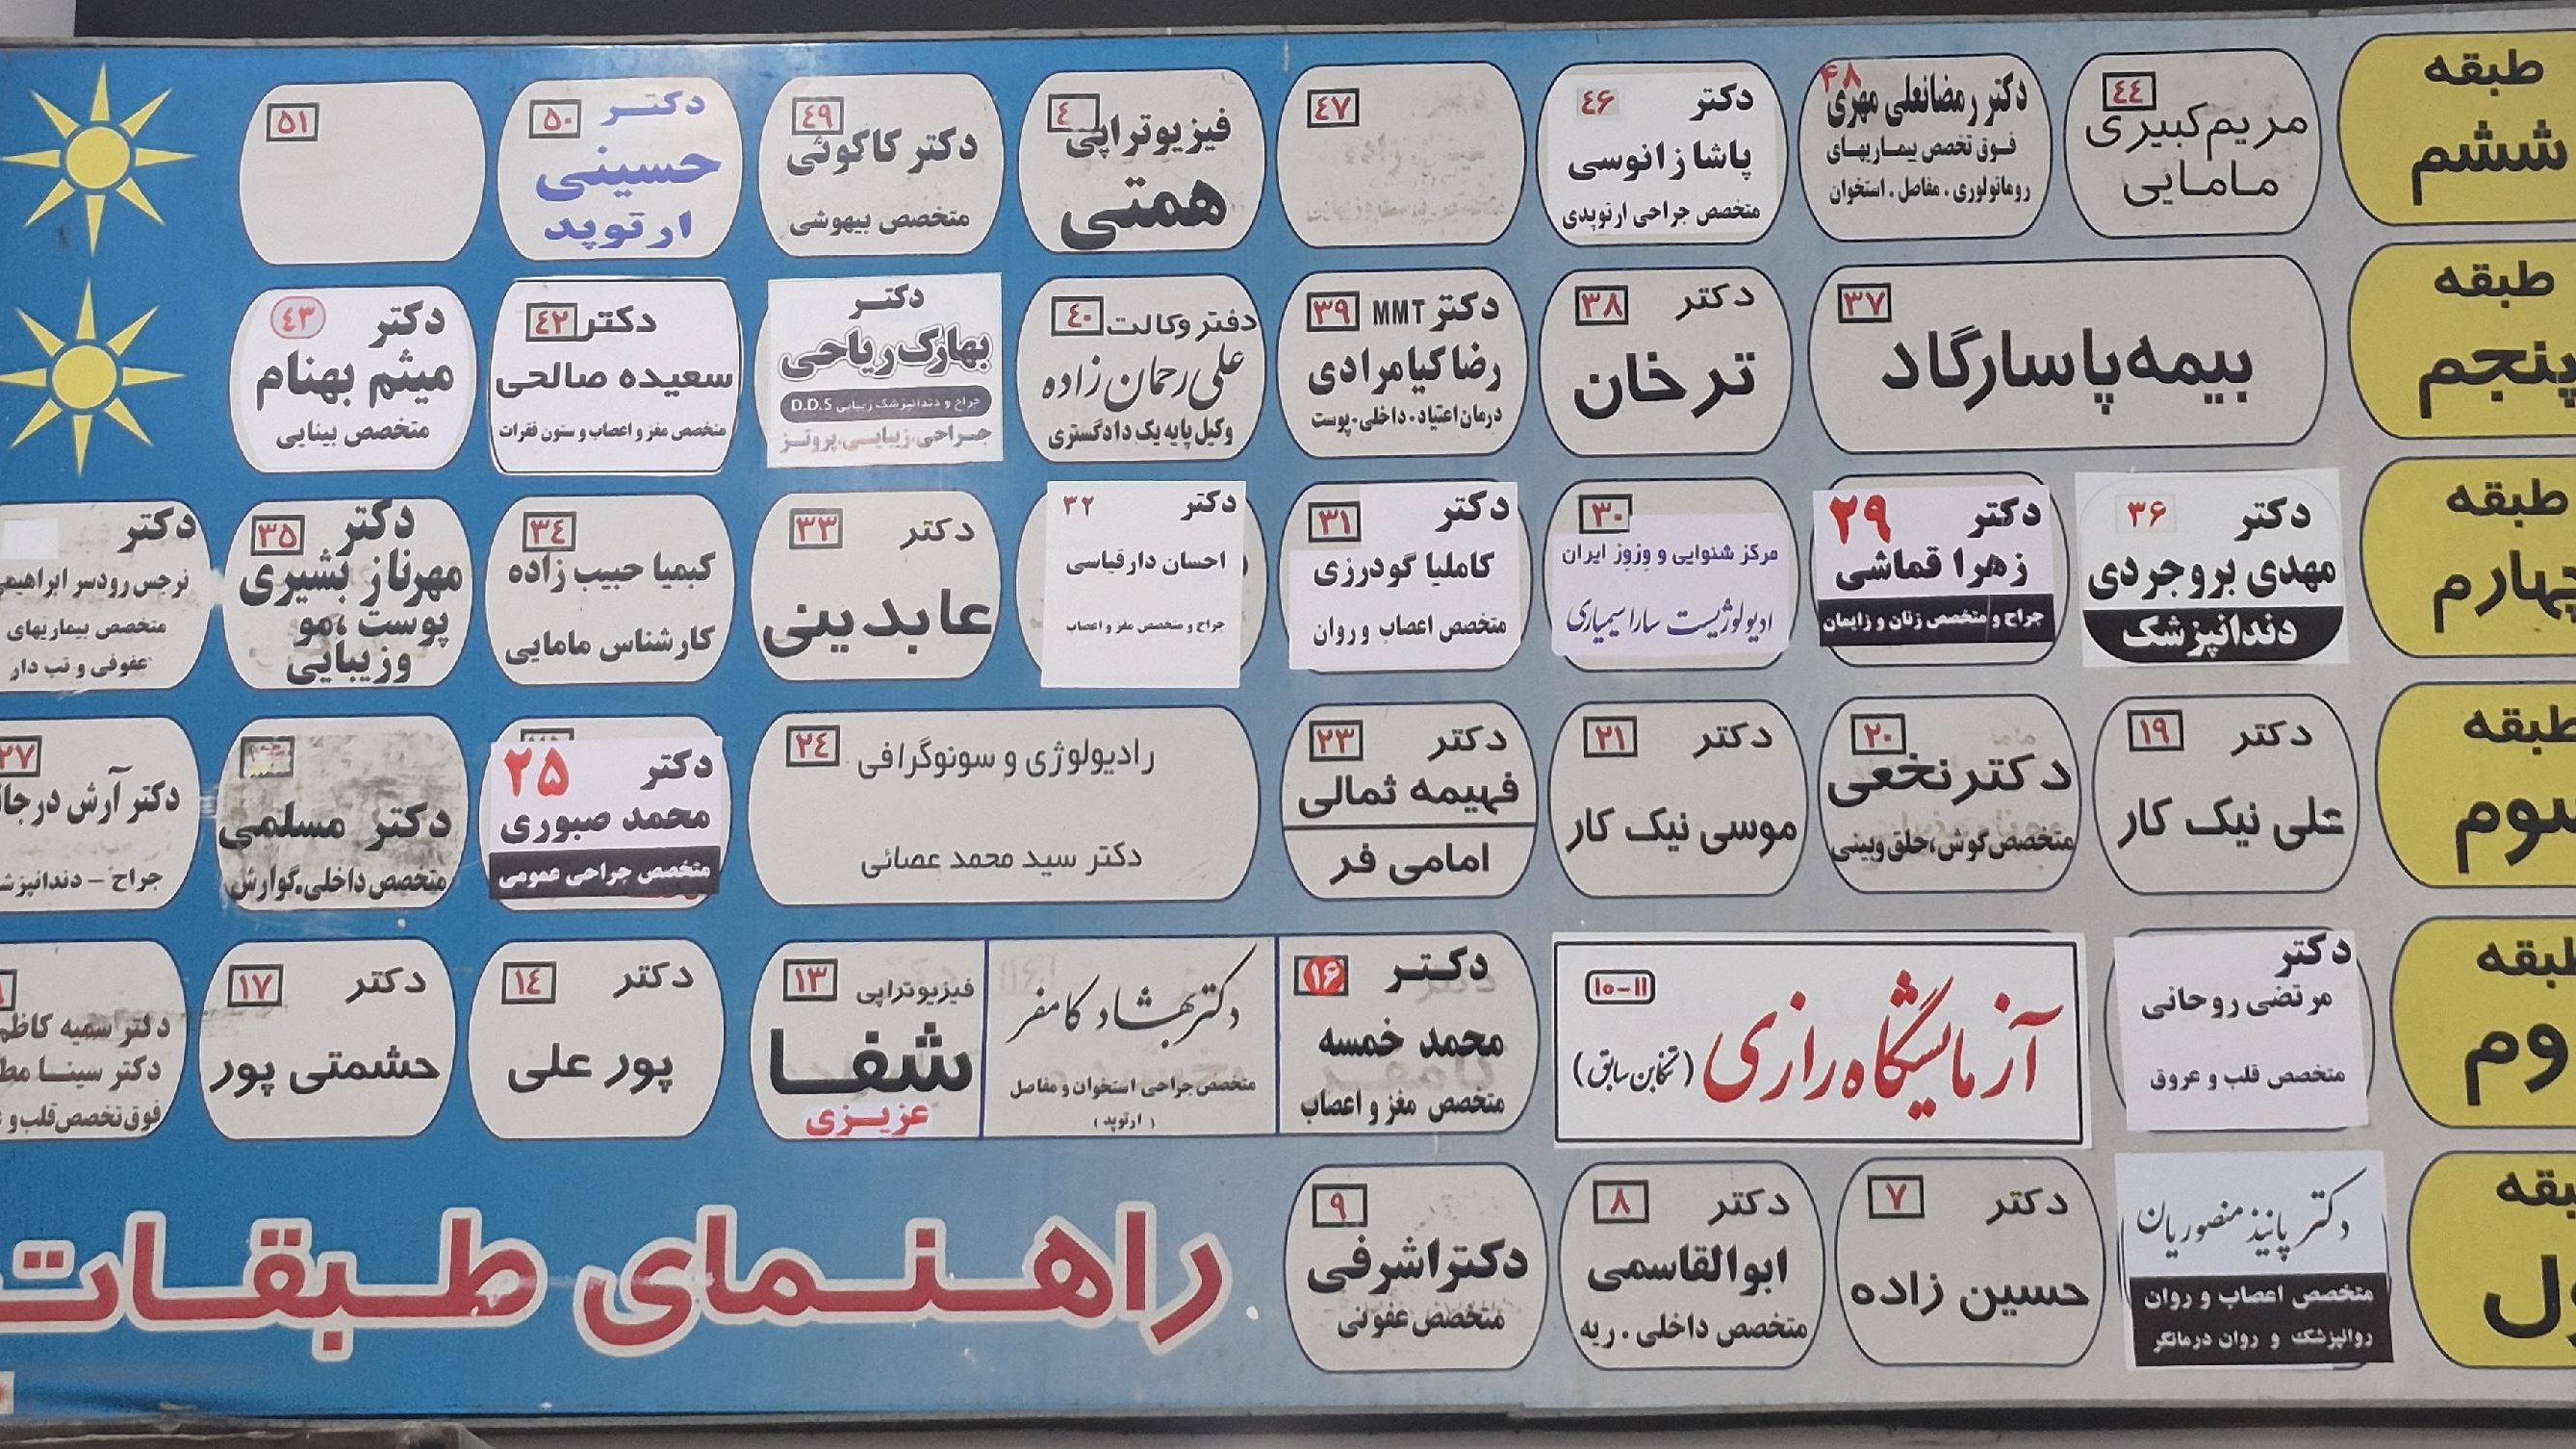 طبقه
ششم
٤٤
مریم کبیری
مامایی
۴۸
دکتر رمضانعلی مهری
فوق تخصص بیماریهای
روماتولوری . مفاصل . استخوان
٤۶
دکتر
پاشا زانوسی
متخصص جراحی ارتوپدی
٤٧
٤
فیزیوتراپی
همتی
٤٩
دکتر کاکوئی
متخصص بیهوشی
۵۰
دکتر
حسینی
ارتوپد
۵۱
طبقه
پنجم
۳۷
بیمه پاسارگاد
۳۸
دکتر
ترخان
۳۹
دکتر MMT
رضا کیامرادی
درمان اعتیاد . داخلی . پوست
٤٠
دفتر وکالت
علی رحمان زاده
وکیل پایه یک دادگستری
دکتر
بهارک ریاحی
جراح و دندانپزشک زیبایی D.D.S
جراحی، زیبایی، پروتز
٤٢
دکتر
سعیده صالحی
متخصص مغز و اعصاب و ستون فقرات
٤٣
دکتر
میثم بهنام
متخصص بینایی
طبقه
چهارم
۳۶
دکتر
مهدی بروجردی
دندانپزشک
۲۹
دکتر
زهرا قماشی
جراح و متخصص زنان و زایمان
۳۰
مرکز شنوایی و وزوز ایران
ادیولوژیست سارا سیمیاری
۳۱
دکتر
کاملیا گودرزی
متخصص اعصاب و روان
۳۲
دکتر
احسان دارقیاسی
جراح و متخصص مغز و اعصاب
۳۳
دکتر
عابدینی
۳٤
کیمیا حبیب زاده
کارشناس مامایی
۳۵
دکتر
مهرناز بشیری
پوست ،مو
وزیبایی
دکتر
نرجس رودسر ابراهیمی
متخصص بیماریهای
عفونی و تب دار
طبقه
سوم
۱۹
دکتر
علی نیک کار
۲۰
دکتر نخعی
متخصص گوش،حلق وبینی
۲۱
دکتر
موسی نیک کار
۲۳
دکتر
فهیمه ثمالی
امامی فر
۲٤
رادیولوژی و سونوگرافی
دکتر سید محمد عصائی
۲۵
دکتر
محمد صبوری
متخصص جراحی عمومی
دکتر مسلمی
متخصص داخلی.گوارش
۲۷
دکتر آرش
جراح - دندانپزش
دکتر
مرتضی روحانی
متخصص قلب و عروق
۱۰-۱۱
آزمایشگاه رازی
(نخبین سابق)
۱۶
دکتر
محمد خمسه
متخصص مغز و اعصاب
دکتر بهشاد کامفر
متخصص جراحی استخوان و مفاصل
( ارتوپد )
۱۳
فیزیوتراپی
شفا
عزیزی
۱٤
دکتر
پور علی
۱۷
دکتر
حشمتی پور
دکتر سمیه کاظم
دکتر سینا
فوق تخصص قلب و
دکتر پانیذ منصوریان
متخصص اعصاب و روان
روانپزشک و روان درمانگر
۷
دکتر
حسین زاده
۸
دکتر
ابوالقاسمی
متخصص داخلی . ریه
۹
دکتر اشرفی
متخصص عفونی
راهنمای طبقات